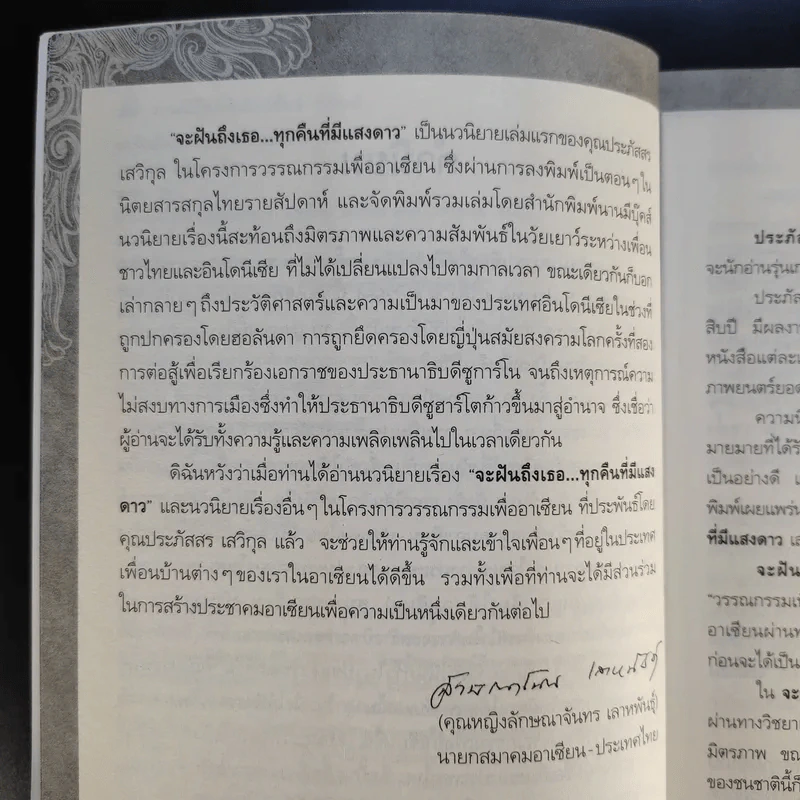 "จะฝันถึงเธอ...ทุกคืนที่มีแสงดาว" เป็นนวนิยายเล่มแรกของคุณประภัสสร
เสวิกุล ในโครงการวรรณกรรมเพื่ออาเซียน ซึ่งผ่านการลงพิมพ์เป็นตอนๆ ใน
นิตยสารสกุลไทยรายสัปดาห์ และจัดพิมพ์รวมเล่มโดยสำนักพิมพ์นานมีบุ๊คส์
นวนิยายเรื่องนี้สะท้อนถึงมิตรภาพและความสัมพันธ์ในวัยเยาว์ระหว่างเพื่อน
ชาวไทยและอินโดนีเซีย ที่ไม่ได้เปลี่ยนแปลงไปตามกาลเวลา ขณะเดียวกันก็บอก
เล่ากลายๆ ถึงประวัติศาสตร์และความเป็นมาของประเทศอินโดนีเซียในช่วงที่
ถูกปกครองโดยฮอลันดา การถูกยึดครองโดยญี่ปุ่นสมัยสงครามโลกครั้งที่สอง
การต่อสู้เพื่อเรียกร้องเอกราชของประธานาธิบดีซูการ์โน จนถึงเหตุการณ์ความ
ไม่สงบทางการเมืองซึ่งทำให้ประธานาธิบดีซูฮาร์โตก้าวขึ้นมาสู่อำนาจ ซึ่งเชื่อว่า
ผู้อ่านจะได้รับทั้งความรู้และความเพลิดเพลินไปในเวลาเดียวกัน
ดิฉันหวังว่าเมื่อท่านได้อ่านนวนิยายเรื่อง "จะฝันถึงเธอ...ทุกคืนที่มีแสง
ดาว" และนวนิยายเรื่องอื่นๆ ในโครงการวรรณกรรมเพื่ออาเซียน ที่ประพันธ์โดย
คุณประภัสสร เสวิกุล แล้ว จะช่วยให้ท่านรู้จักและเข้าใจเพื่อนๆ ที่อยู่ในประเทศ
เพื่อนบ้านต่างๆ ของเราในอาเซียนได้ดีขึ้น รวมทั้งเพื่อที่ท่านจะได้มีส่วนร่วม
ในการสร้างประชาคมอาเซียนเพื่อความเป็นหนึ่งเดียวกันต่อไป
(คุณหญิงลักษณาจันทร เลาหพันธุ์)
นายกสมาคมอาเซียน - ประเทศไทย
ประภัส
จะนักอ่านรุ่นเก
ประภัส
สิบปี มีผลงา
หนังสือแต่ละเ
ภาพยนตร์ยอด
ความนิ
มายมายที่ได้รั
เป็นอย่างดี
พิมพ์เผยแพร่ใ
ที่มีแสงดาว
จะฝัน
"วรรณกรรมเพื่
อาเซียนผ่านท
ก่อนจะได้เป็น
ใน จะ
ผ่านทางวิชยา
มิตรภาพ ขณ
ของชนชาตินี้ก็